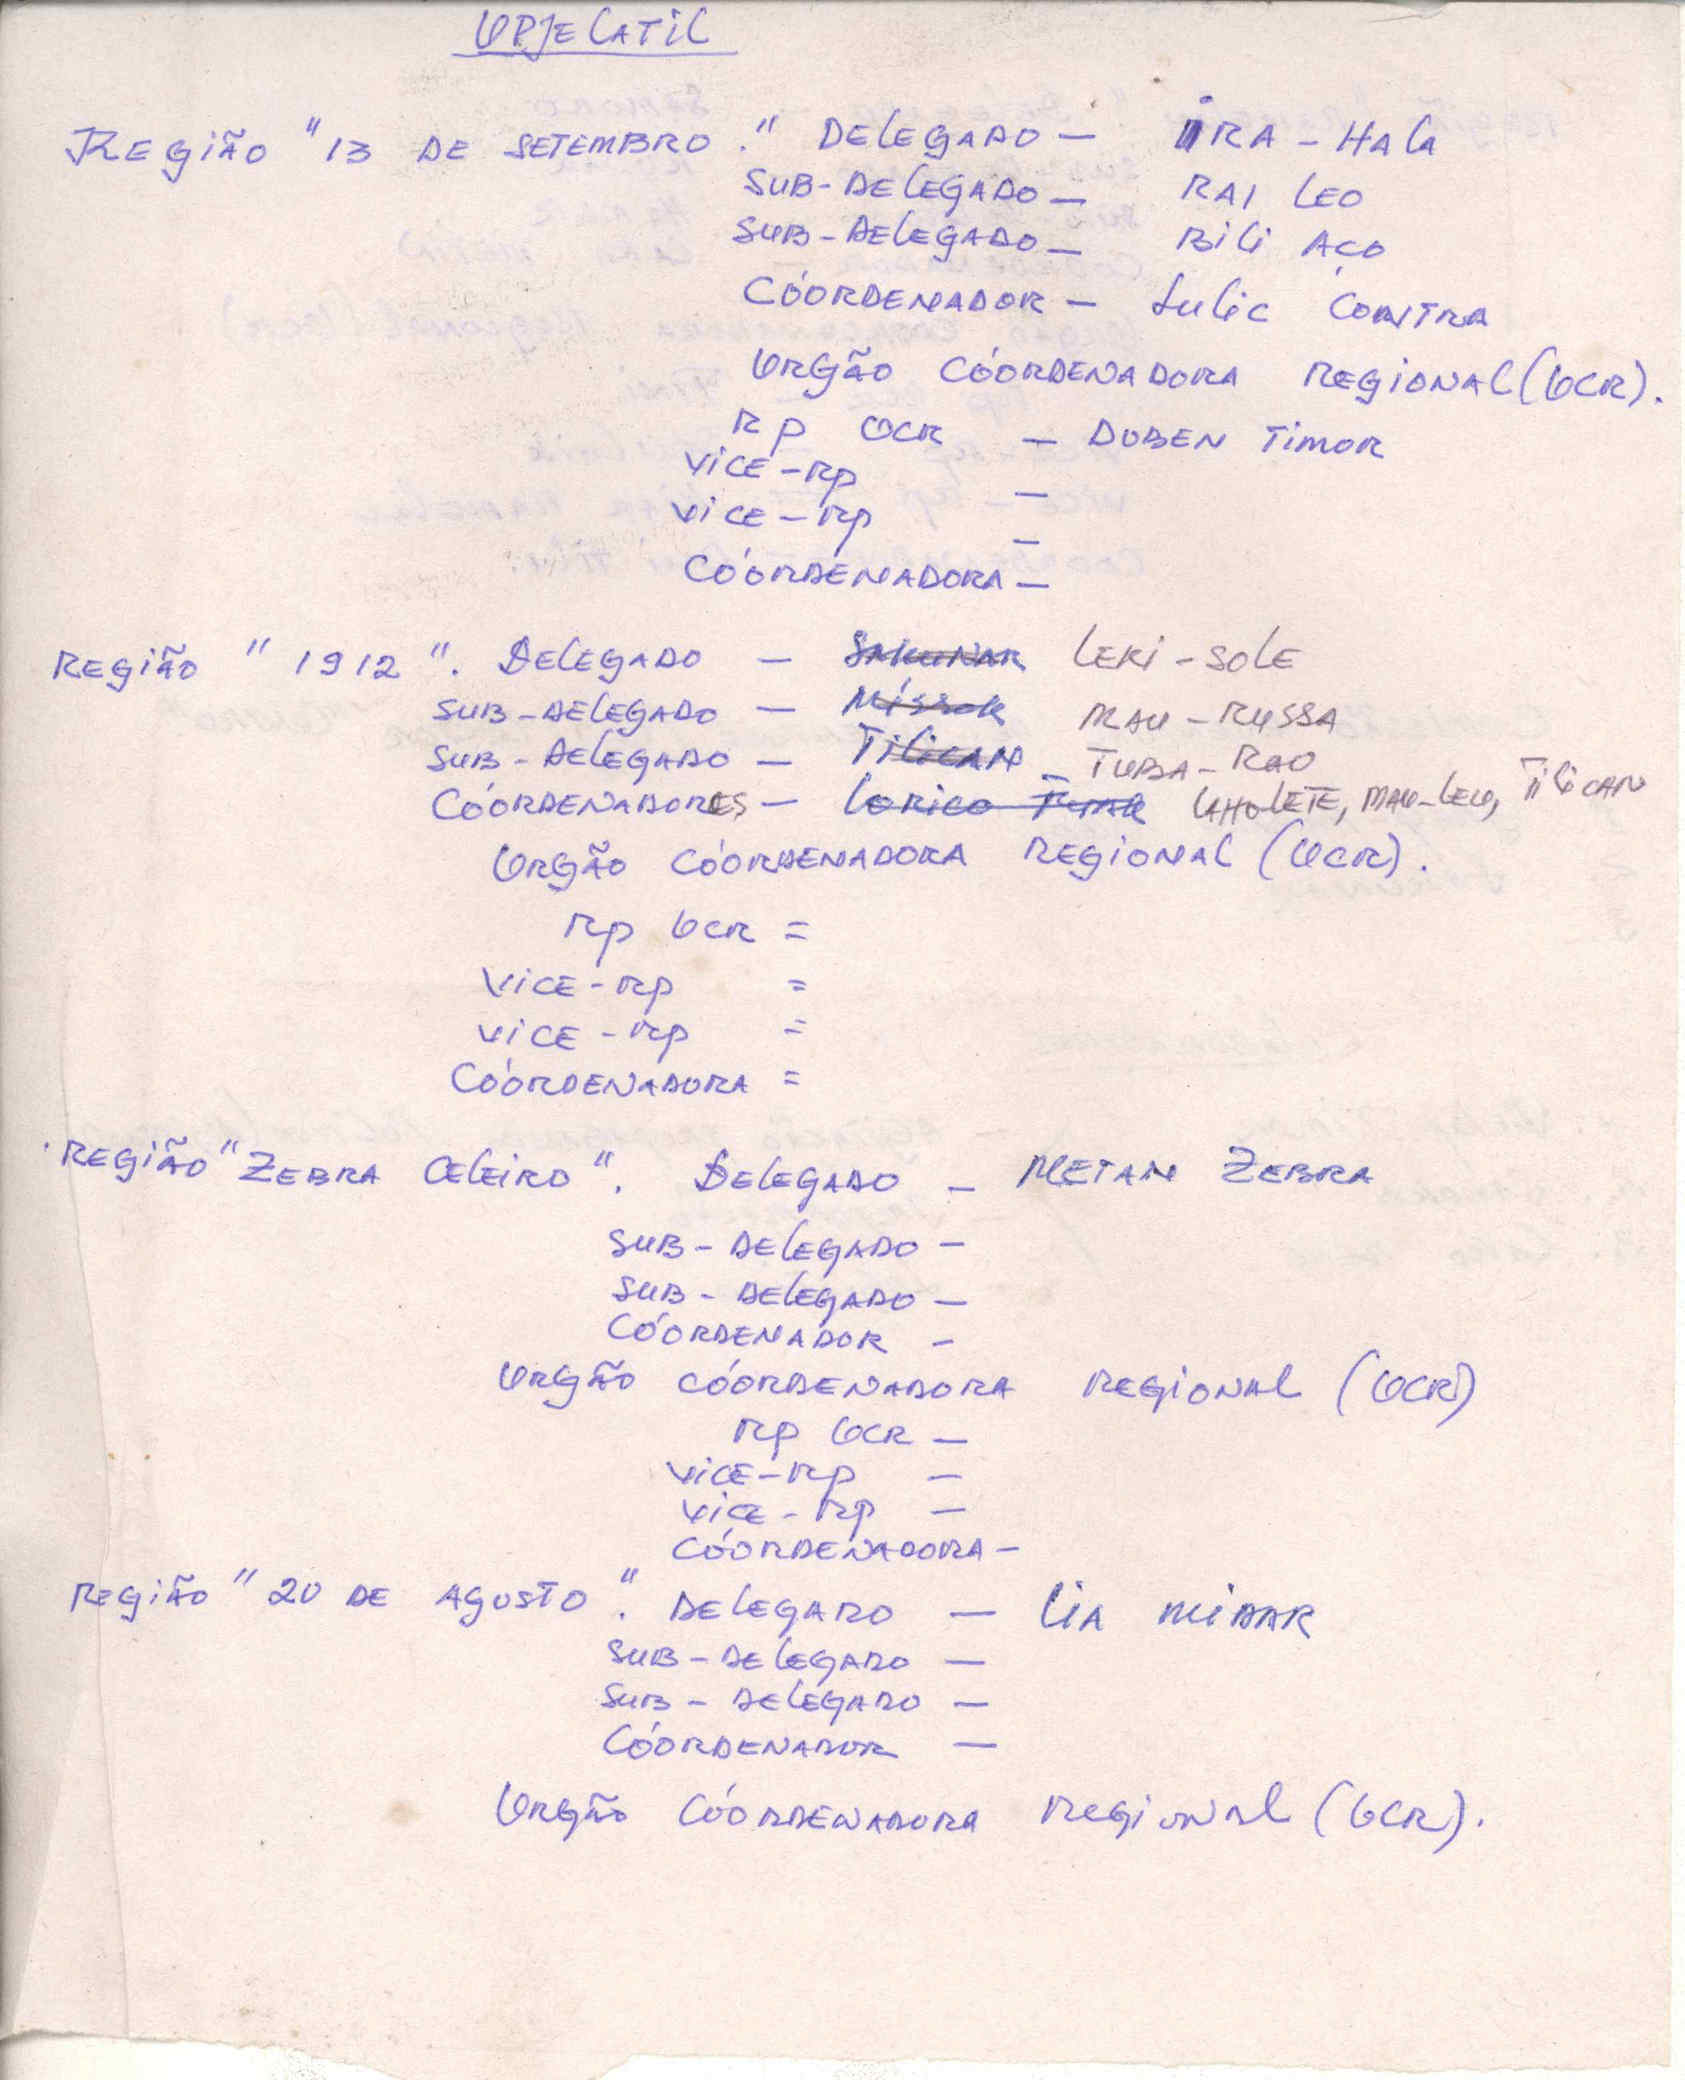 OPJELATIL
REGIÃO "13 DE SETEMBRO." DELEGADO — IRA-HALA
SUB-DELEGADO — RAI LEO
SUB-DELEGADO — BILI AÇO
CÓORDENADOR — Lulic CONTRA
ORGÃO CÓORDENADORA REGIONAL (OCR).
RP OCR — DUBEN TIMOR
VICE-RP —
VICE-RP —
CÓORDENADORA —
REGIÃO "1912". DELEGADO — SAKUNAR LEKI-SOLE
SUB-DELEGADO — MISSOK MAU-RUSSA
SUB-DELEGADO — TILICAN — TUBA-RAO
CÓORDENADORES — LORICO LAHOLETE, MAU-LEU, TILICAN
ORGÃO CÓORDENADORA REGIONAL (OCR).
RP OCR =
VICE-RP =
VICE-RP =
CÓORDENADORA =
REGIÃO "ZEBRA CELEIRO". DELEGADO — METAN ZEBRA
SUB-DELEGADO —
SUB-DELEGADO —
CÓORDENADOR —
ORGÃO CÓORDENADORA REGIONAL (OCR)
RP OCR —
VICE-RP —
VICE-RP —
CÓORDENADORA —
REGIÃO "20 DE AGUSTO". DELEGADO — LIA MIDAR
SUB-DELEGADO —
SUB-DELEGADO —
CÓORDENADOR —
ORGÃO CÓORDENADORA REGIONAL (OCR).